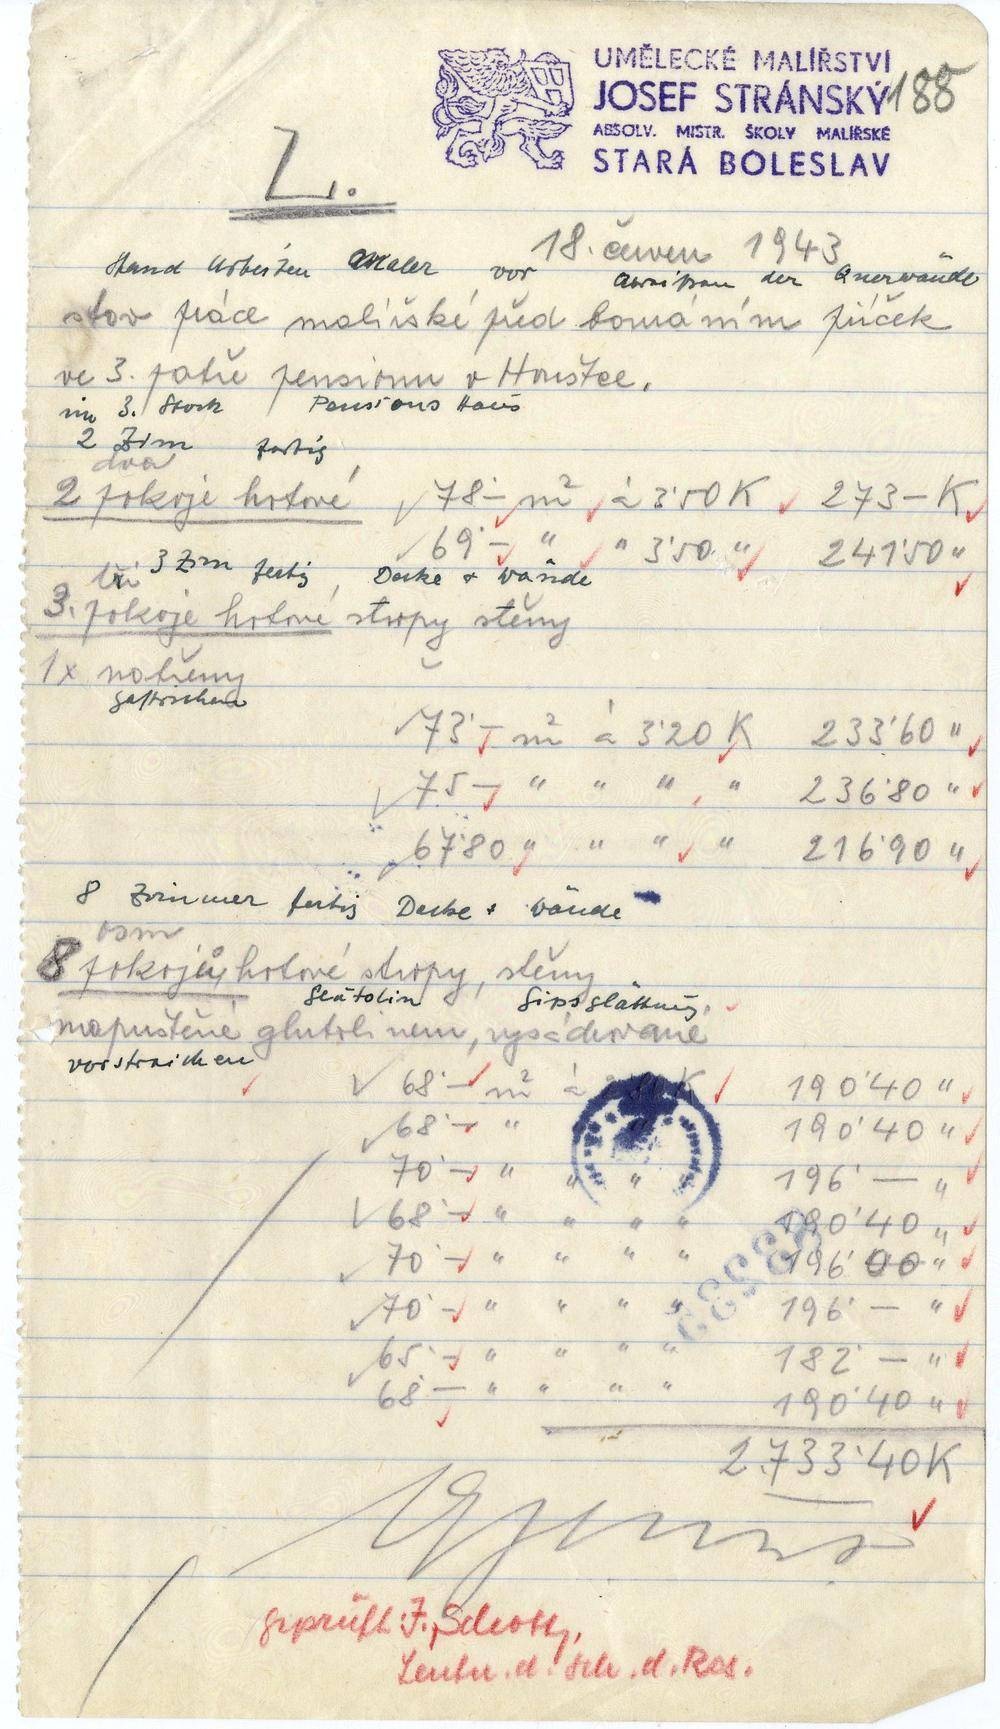 UMĚLECKÉ MALÍŘSTVÍ
JOSEF STRÁNSKÝ
ABSOLV. MISTR. ŠKOLY MALÍŘSKÉ
STARÁ BOLESLAV
188
Z.
18. červen 1943
Stand Arbeiten Maler vor der Querwände
stav práce malířské před bouráním příček
ve 3. patře pensionu v Houštce.
im 3. Stock Pensions Haus
2 Zim fertig
dva
2 pokoje hotové 78·– m² á 3'50 K 273– K
69·– " " 3'50 " 241'50 "
tři 3 Zim fertig Decke + Wände
3. pokoje hotové stropy stěny
1x natřeny
gestrichen
73·– m² á 3'20 K 233'60 "
75– " " " " 236'80 "
67'80 " " " " 216'90 "
8 Zimmer fertig Decke + Wände
osm
8 pokojů hotové stropy, stěny
Glutolin Gipsglättung
napuštěné glutolinem, vysádrované
vorstreichen
68·– m² á K 190'40 "
68·– " 190'40 "
70·– " " " 196'— "
68·– " " " " 190'40 "
70·– " " " " 196'00 "
70·– " " " " 196'— "
65·– " " " " 182'— "
68·— " " " " 190'40 "
2.733'40 K
geprüft: F. Schotz,
Leutn. d. Sch. d. Res.